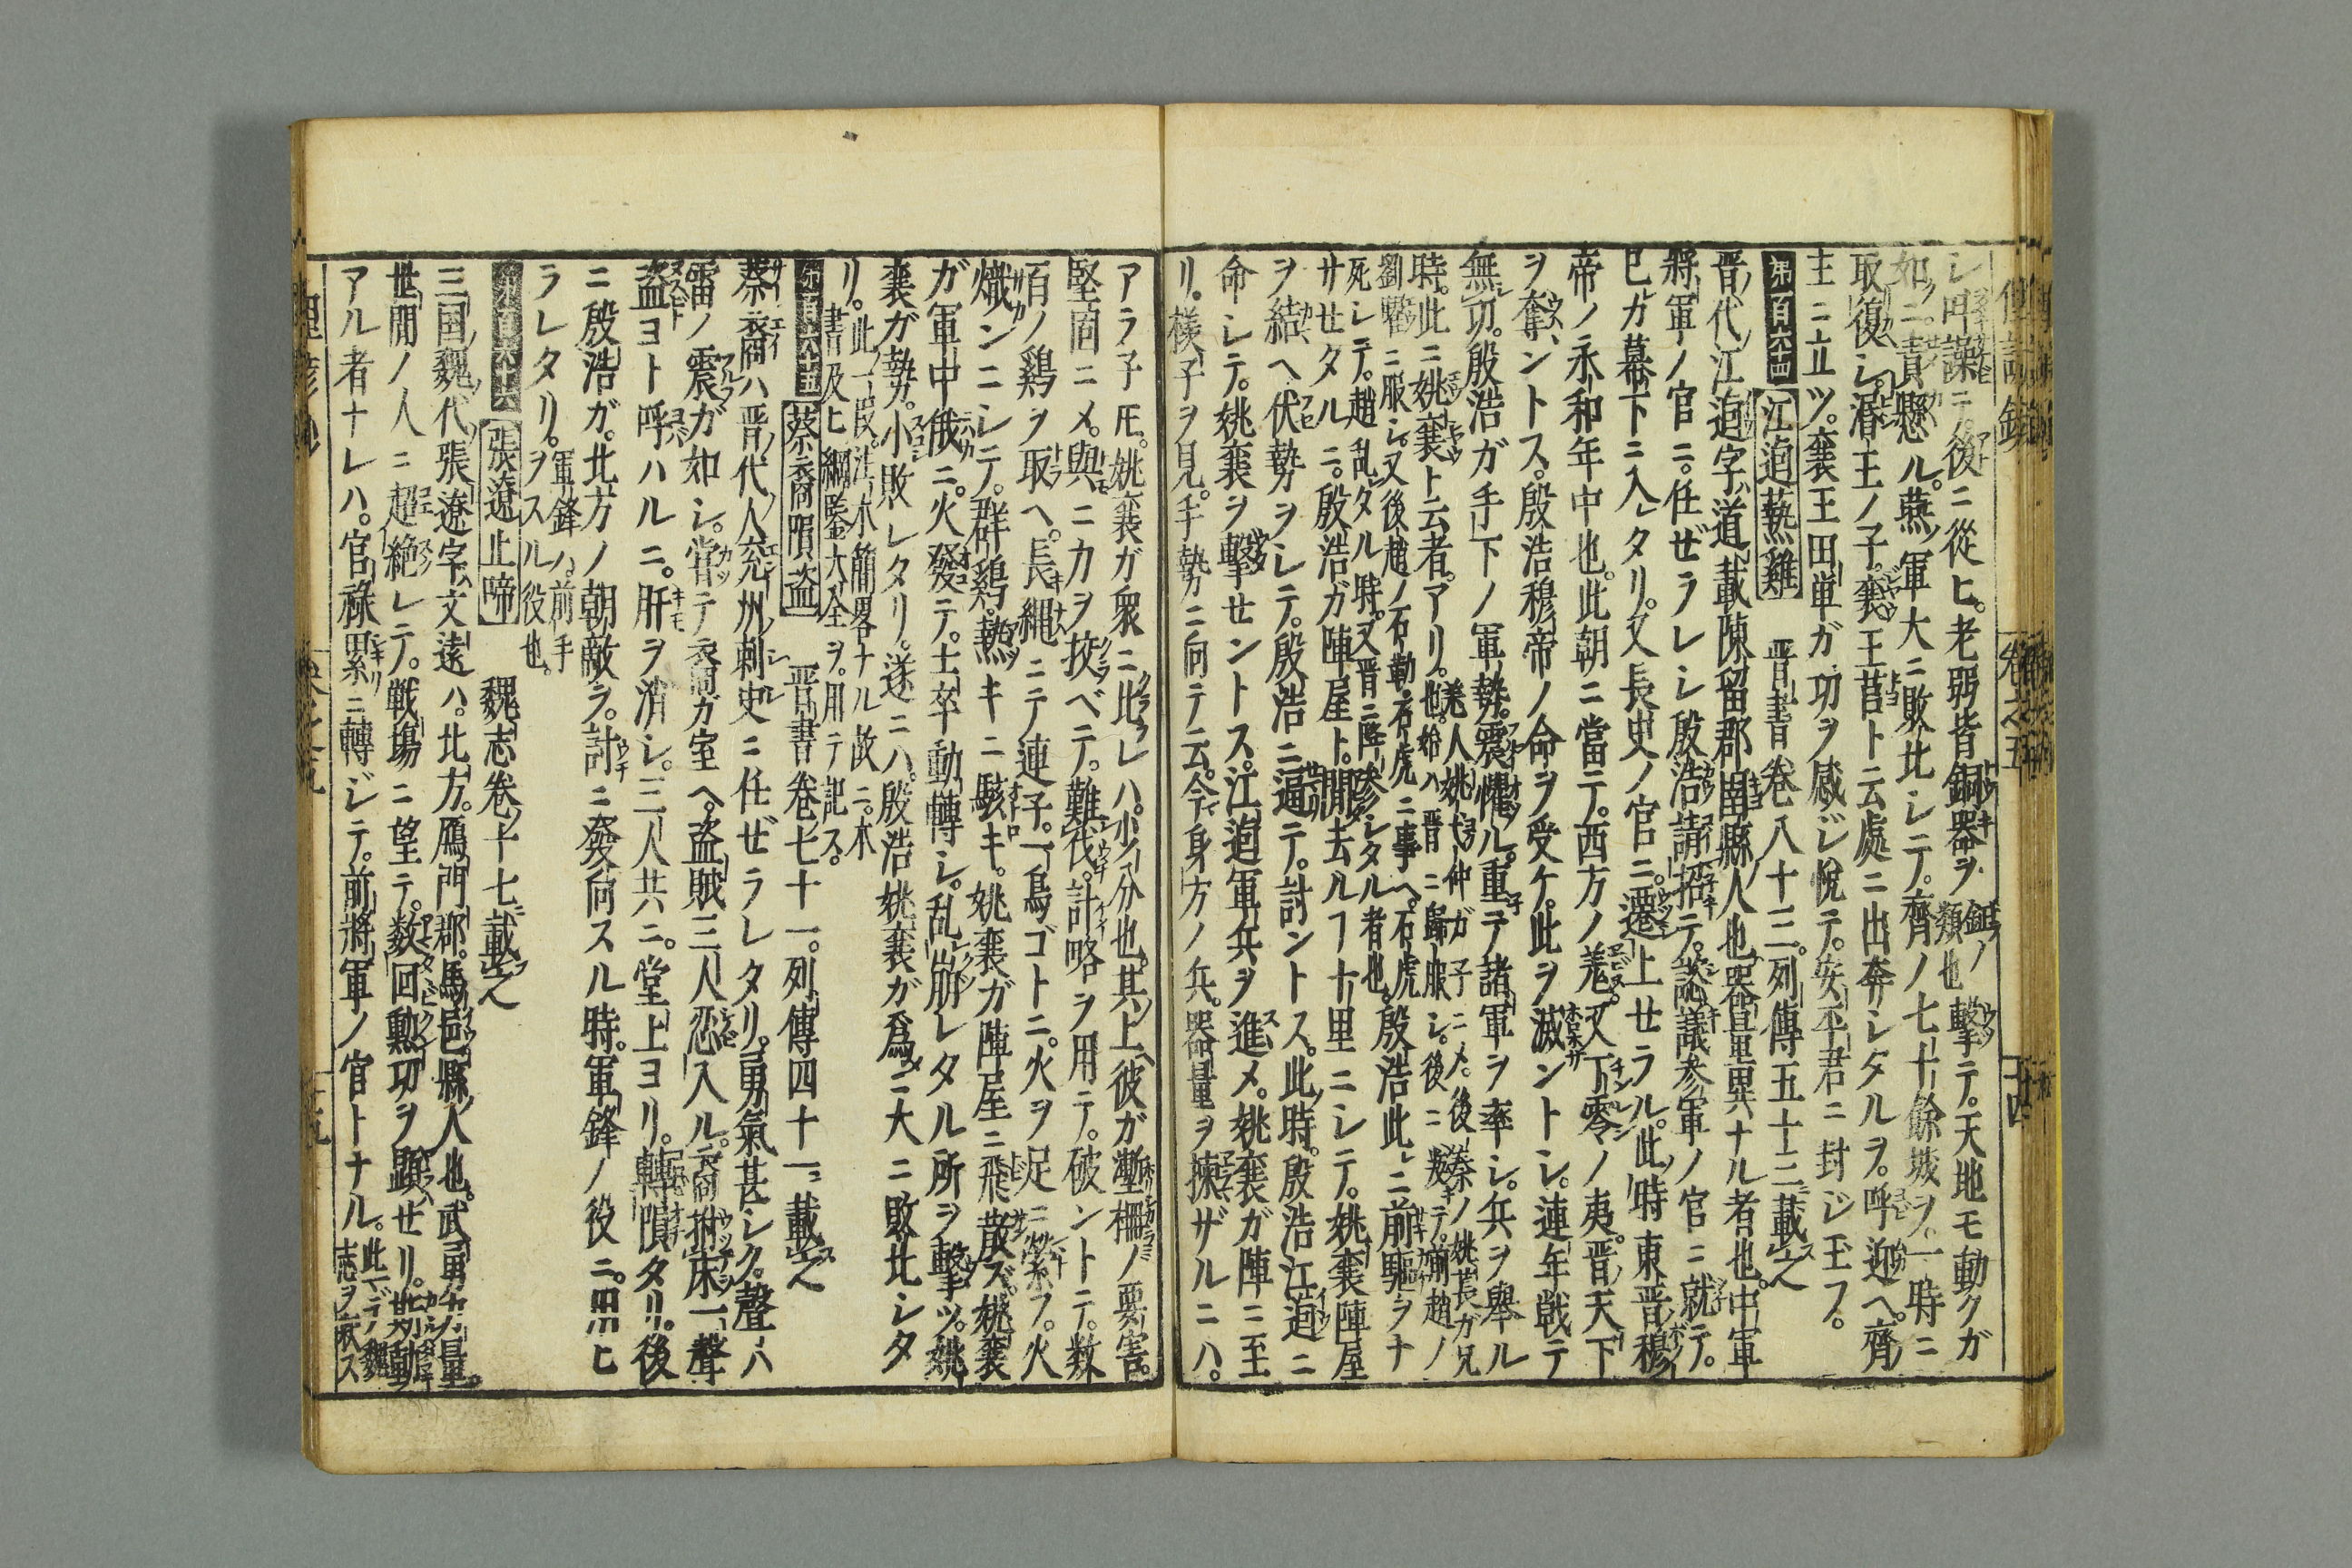 シ叫譟ニテ。後ニ從ヒ。老弱皆銅器ヲ鉦ノ類也撃テ。天地モ動クガ
如ニ。責懸ル。燕ノ軍大ニ敗北シニテ。齊ノ七十餘城ヲ。一時ニ
取復シ。湣王ノ子。襄王莒ト云處ニ出奔シタルヲ。呼迎ヘ。齊ノ
主ニ立ツ。襄王田単ガ功ヲ感ジ悅テ。安平君ニ封ジ玉フ。
第百六十四 江逌爇雞 晋書卷八十三。列傳五十三載之
晋ノ代江逌字ハ道載陳留郡圉縣ノ人也器量異ナル者也。中軍
將軍ノ官ニ。任ゼラレシ殷浩請招テ。諮議参軍ノ官ニ就テ。
已ガ幕下ニ入タリ。又長史ノ官ニ。遷上セラル。此時東晋ノ穆
帝ノ永和年中也。此朝ニ當テ。西方ノ羌。又丁零ノ夷。晋ノ天下
ヲ奪ントス。殷浩穆帝ノ命ヲ受ケ。此ヲ滅ントシ。連年戰テ
無功。殷浩ガ手下ノ軍勢。震懼ル。重テ諸軍ヲ率シ。兵ヲ舉ル
時。此ニ姚襄ト云者。アリ。羌人姚弋仲ガ子ニメ。後秦ノ姚萇ガ兄也。始ハ晋ニ歸服シ。後ニ叛キテ。前趙ノ
劉曜ニ服シ。又後趙ノ石勒。石虎ニ事ヘ。石虎死シテ。趙乱タル時。又晋ニ降参シタル者也。殷浩此ニ前驅ヲナ
サセタルニ。殷浩ガ陣屋ト。間去ルヿ十里ニシテ。姚襄陣屋
ヲ結ヘ伏勢ヲシテ。殷浩ニ逼テ。討ントス。此時。殷浩江逌ニ
命シテ。姚襄ヲ撃セントス。江逌軍兵ヲ進メ。姚襄ガ陣ニ至
リ。樣子ヲ見。手勢ニ向テ云。今身方ノ兵。器量ヲ揀ザルニハ。
アラ子𪜈。姚襄ガ衆ニ比レハ。少分也。其上彼ガ塹柵ノ要害。
堅固ニメ。與ニカヲ挍ベテ。難伐。計略ヲ用テ。破ントテ。数
百ノ鷄ヲ取ヘ。長縄ニテ連子。一鳥ゴトニ。火ヲ足ニ縈フ。火
熾ンニシテ。群鷄。熱キニ駭キ。姚襄ガ陣屋ニ飛散ズ。姚襄
ガ軍中俄ニ。火發テ。士卒動轉シ。乱崩レタル所ヲ撃ツ。姚
襄ガ勢。小敗レタリ。遂ニハ。殷浩姚襄ガ爲ニ大ニ敗北シタ
リ。此一段。注ノ本簡畧ナル故ニ。本書及ヒ綱鑒大全ヲ。用テ記ス。
第百六十五 蔡裔隕盗 晋書卷七十一。列傳四十一ニ載之
蔡裔ハ晋ノ代ノ人兗州ノ刺史ニ任ゼラレタリ。勇氣甚シク。聲ハ
雷ノ震ガ如シ。嘗テ裔ガ室ヘ。盗賊三人忍入ル。裔拊床一聲
盗ヨト呼ハルニ。肝ヲ消シ。三人共ニ。堂上ヨリ。轉隕タリ。後
ニ殷浩ガ。北方ノ朝敵ヲ。討ニ發向スル時。軍鋒ノ役ニ。用ヒ
ラレタリ。軍鋒ハ前手ヲスル役也。
第百六十六 張遼止啼 魏志卷ノ十七ニ載之
三国ノ魏ノ代張遼字ハ文遠ハ。北方。鴈門郡。馬邑縣ノ人也。武勇力量。
世間ノ人ニ超絶シテ。戦場ニ望テ。数回勲功ヲ顕セリ。其勤
アル者ナレハ。官祿累ニ轉ジテ。前將軍ノ官トナル。此マデノ魏志ヲ畧ス
卷之五
十四